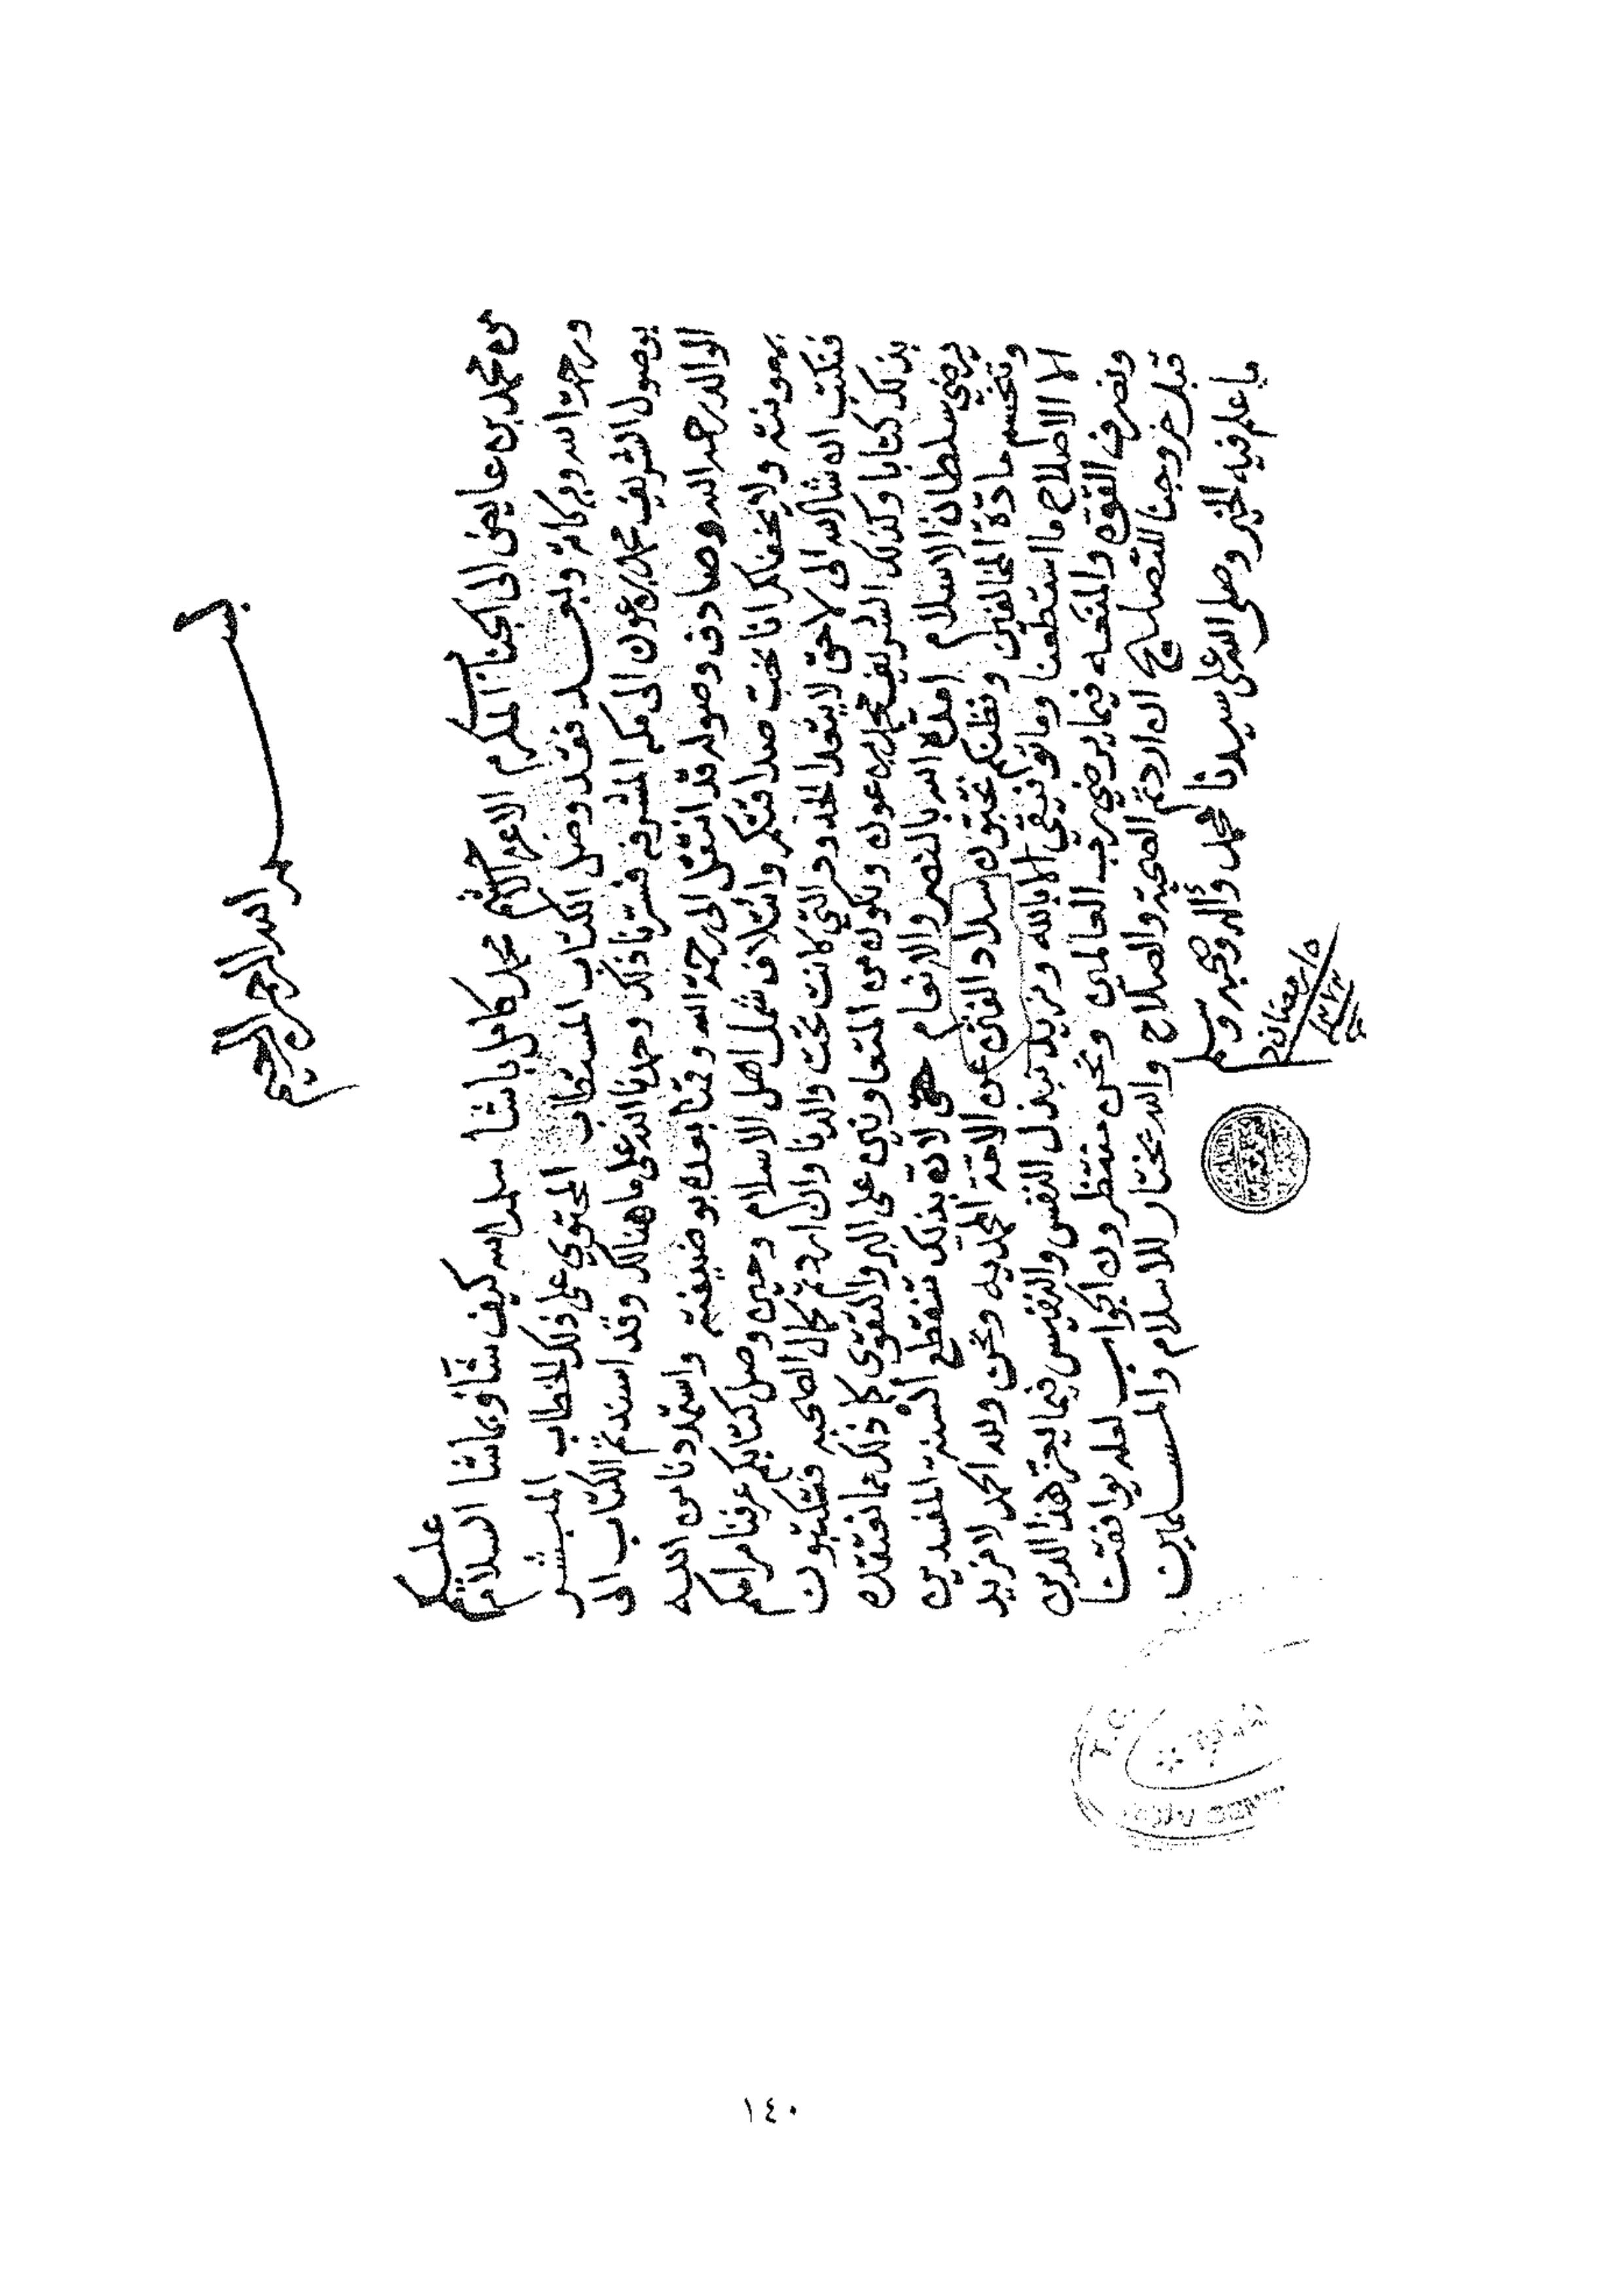 بسم الله الرحمن الرحيم
من محمد بن عايض الى الجناب المكرم الاعز الافخم محمد كامل باشا سلمه الله كيف شاء وبما شا السلام عليكم
ورحمة الله وبركاته وبعد فقد وصل الكتاب المستطاب المحتوي على ذلك الخطاب المبشر
بوصول الشريف محمد بن عون الى مكه المشرفه فسرنا ذلك وحمدنا الله على ما هنالك وقد اسندتم الكتاب الى
الوالد رحمه الله وصادف وصوله قد انتقل الى رحمة الله وقمنا بعده بوضيفته واستمدونا من الله
بمعونته ولا يخفاكم انا نحب صداقتكم وائتلاف شمل اهل الاسلام وحين وصل كتابكم عرفنا مرامكم
فنكتب ان شا الله الى لاحق لا يتعدا الحدود التي كانت تحت والدنا وان اردتم كمال الصحبه فتكتبون
بذلك كتابا وكذلك الشريف محمد بن عون ونكون من المتعاونين على البر والتقوى كما ذلك مما نعتقده
يرضي سلطان الاسلام امده الله بالنصر والانعام حتى لانه بذلك تنقطع ألسنة المفسدين
وتنحسم مادة المخالفين ونظنكم تحبون سداد الفتن عن الامة المحمديه ونحن ولله الحمد لا نريد
الا الاصلاح ما استطعنا وما توفيقي الا بالله ونريد نبذل النفس والنفيس فيما يعز هذا الدين
ونصرف القوه والمنعه فيما يرضي رب العالمين ونحن منتظرون الجواب لعله يوافقنا
قبل خروجنا للتصليح ان اردتم الصحبة والصلاح والله يختار للاسلام والمسلمين
ما علم فيه الخير وصلى الله على سيدنا محمد وآله وصحبه وسلم
رمضان
١٤٠